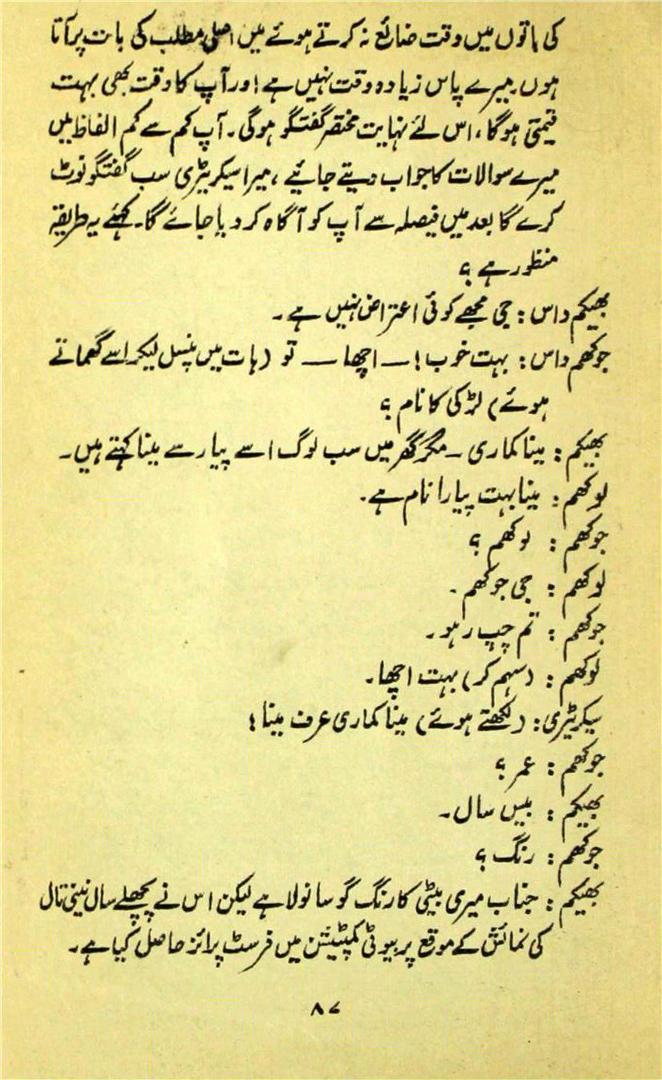 کی باتوں میں وقت ضائع نہ کرتے ہوئے میں اصلی مطلب کی بات پر آتا
ہوں۔ میرے پاس زیادہ وقت نہیں ہے اور آپ کا وقت بھی بہت
قیمتی ہوگا، اس لئے نہایت مختصر گفتگو ہوگی۔ آپ کم سے کم الفاظ میں
میرے سوالات کا جواب دیتے جائیے، میرا سیکریٹری سب گفتگو نوٹ
کرے گا بعد میں فیصلہ سے آپ کو آگاہ کر دیا جائے گا۔ کہئے یہ طریقہ
منظور ہے؟
بھیکم داس: جی مجھے کوئی اعتراض نہیں ہے۔
جوکھم داس: بہت خوب! — اچھا — تو (ہات میں پنسل لیکر اسے گھماتے
ہوئے) لڑکی کا نام؟
بھیکم: بینا کماری۔ مگر گھر میں سب لوگ اسے پیار سے بینا کہتے ہیں۔
لوکھم: بینا بہت پیارا نام ہے۔
جوکھم: لوکھم؟
لوکھم: جی جوکھم۔
جوکھم: تم چپ رہو۔
لوکھم: (سہم کر) بہت اچھا۔
سیکریٹری: (لکھتے ہوئے) بینا کماری عرف بینا!
جوکھم: عمر؟
بھیکم: بیس سال۔
جوکھم: رنگ؟
بھیکم: جناب میری بیٹی کا رنگ گو سانولا ہے لیکن اس نے پچھلے سال نینی تال
کی نمائش کے موقع پر بیوٹی کمپٹیشن میں فرسٹ پرائز حاصل کیا ہے۔
۸۷